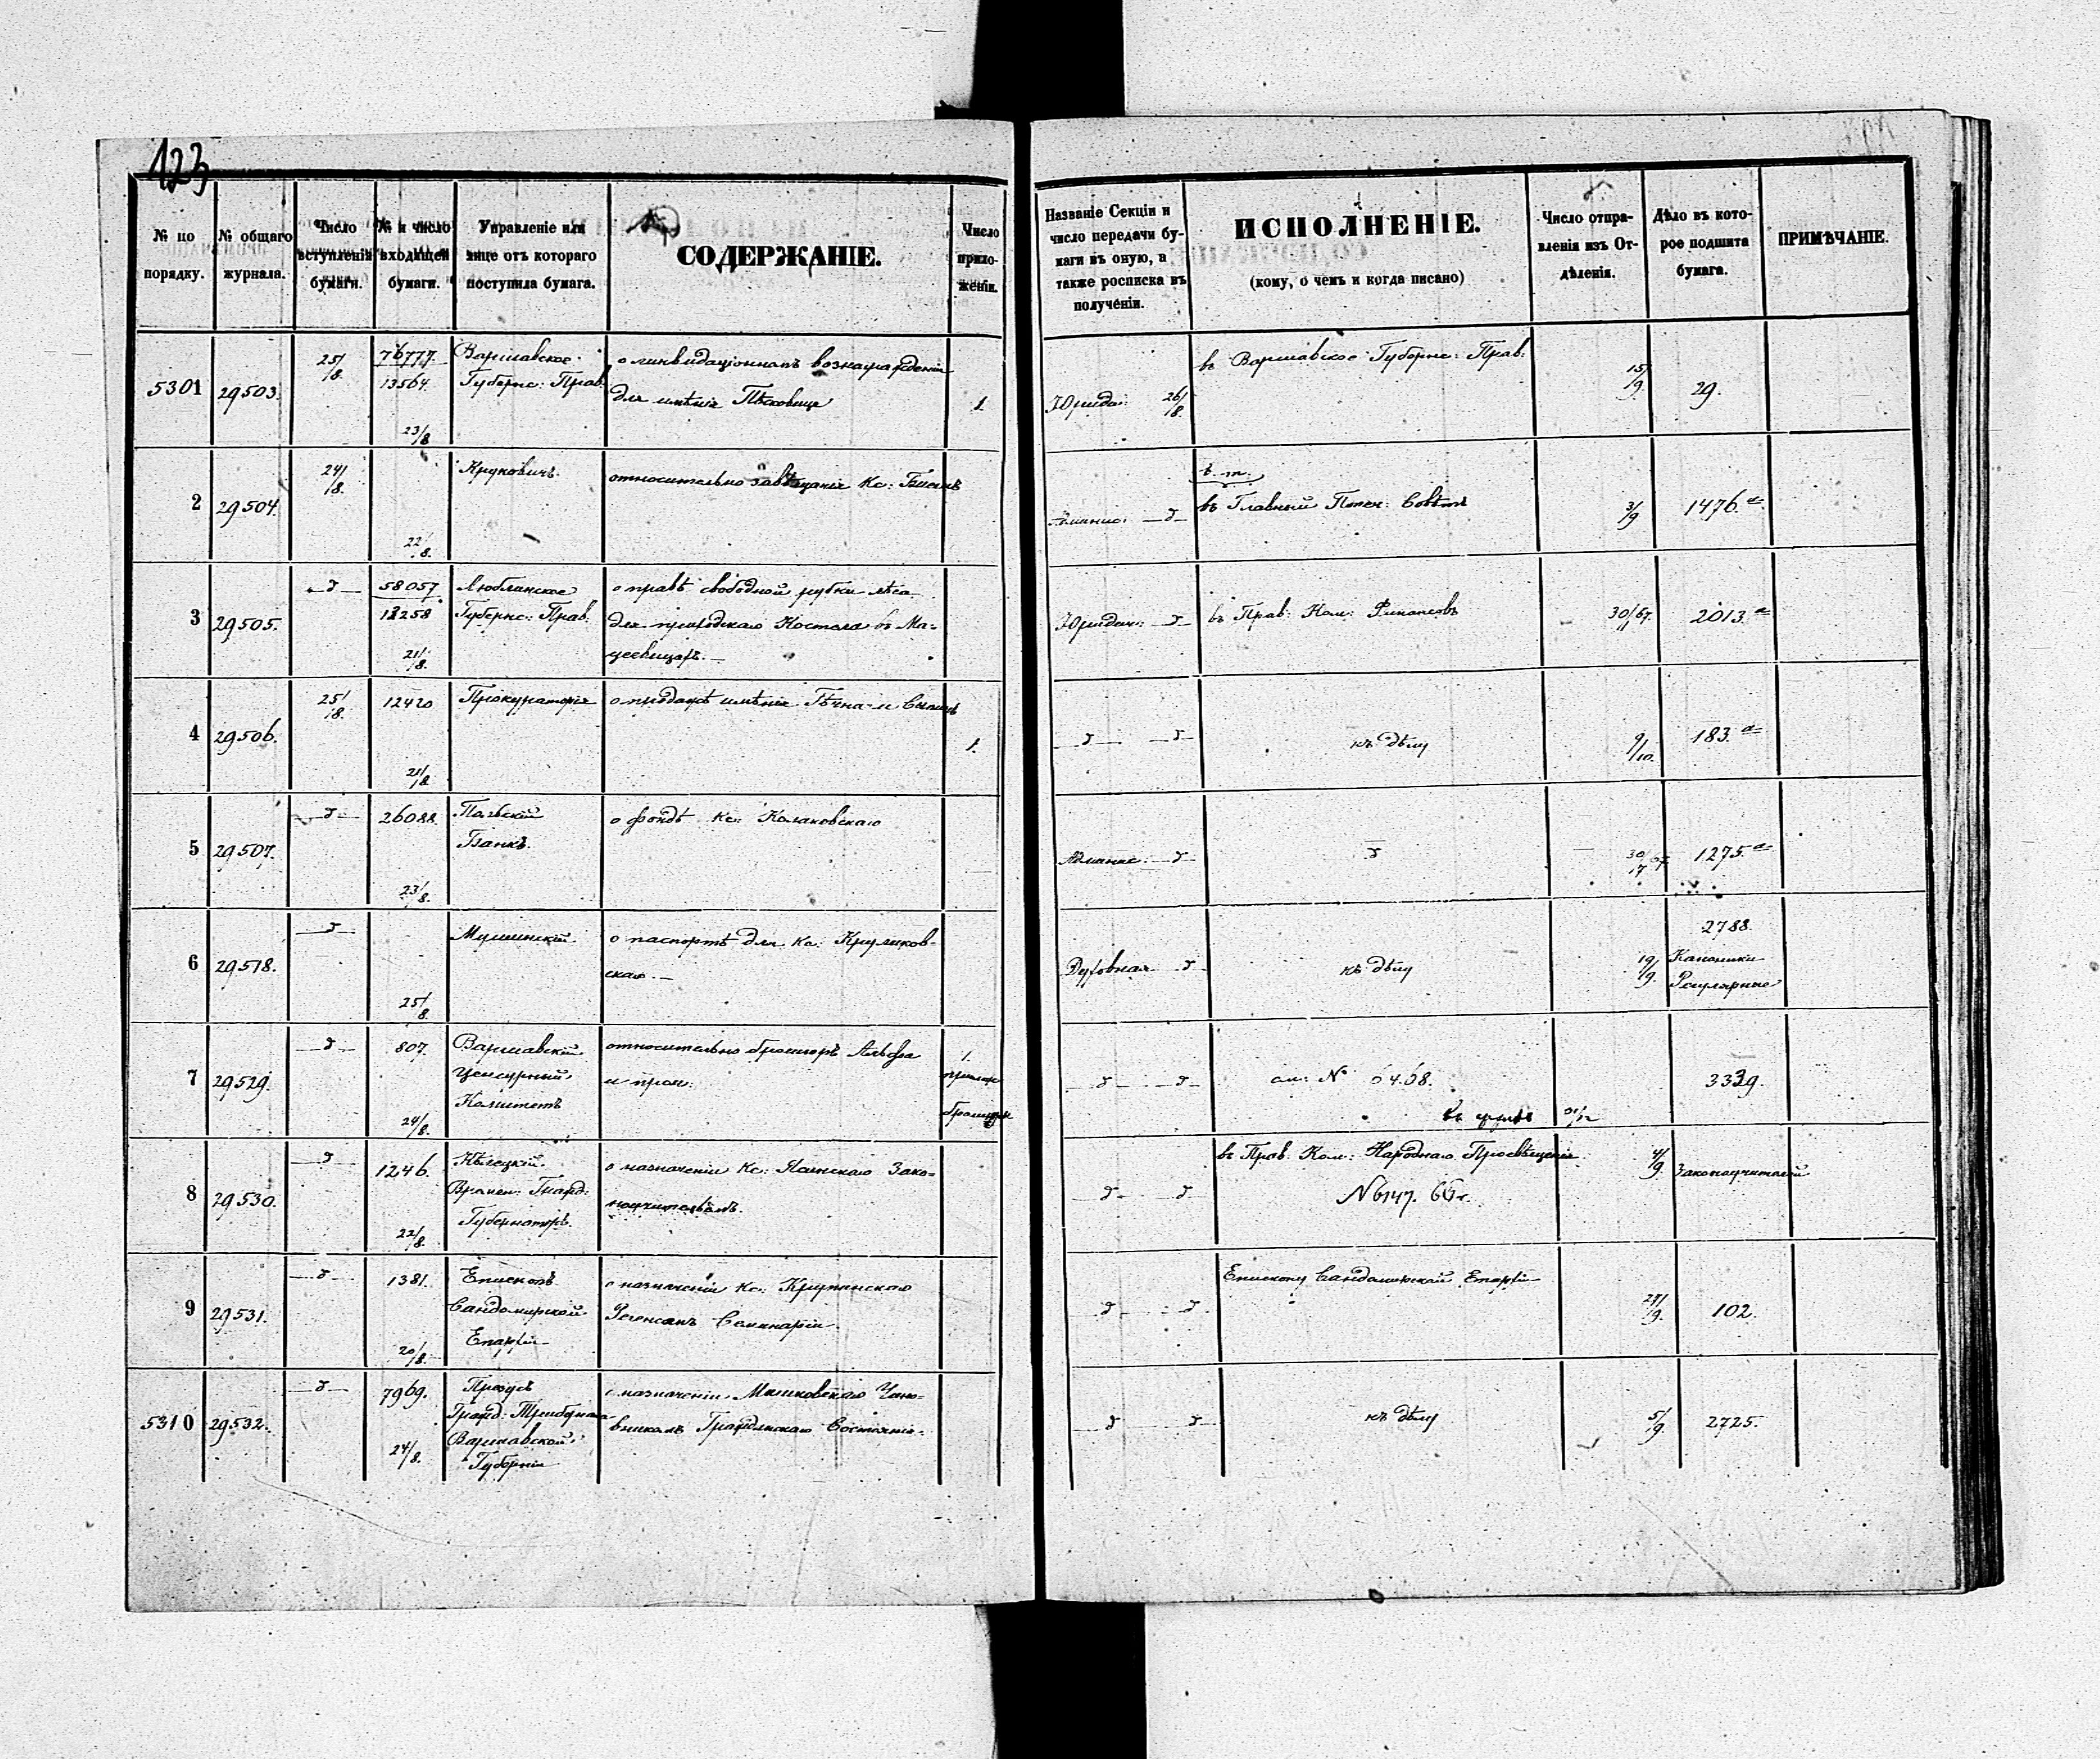 123
№ по порядку.
№ общаго журнала.
Число вступленія бумаги.
№ и число входящей бумаги.
Управленіе или лице отъ котораго поступила бумага.
СОДЕРЖАНІЕ.
Число приложеній.
Названіе Секціи и число передачи бумаги въ оную, а также росписка въ полученіи.
ИСПОЛНЕНІЕ.
(кому, о чемъ и когда писано)
Число отправленія изъ Отдѣленія.
Дѣло въ которое подшита бумага.
ПРИМѢЧАНІЕ.
5301 29503. 25/8 76777. Варшавское о ликвидаціонномъ вознагражденіи
13564. Губернс: Прав: для имѣнія Пѣсковице 1.
23/8
Юридич: 26/8 въ Варшавское Губернс: Прав: 15/9. 29.
2 29504. 24/8. Круковичъ. относительно завѣщанія Кс:
22/8.
Админис: —д— въ Главный Попеч: Совѣтъ 3/9 1476.а
3 29505. —д— 58057 Люблинское о правѣ свободной рубки лѣса
13258 Губернс: Прав: для приходскаго Костела въ Ма-
21/8. цеевицахъ.—
Юридич: —д— въ Прав: Ком: Финансовъ 30/11 67. 2013.а
4 29506. 25/8. 12420 Прокураторія о продажѣ имѣнія
21/8 1.
—д— —д— къ дѣлу 9/10. 183.а
5 29507. —д— 26088. Польскій о фондѣ Кс: Колаковскаго
Банкъ.
23/8.
Админис: —д— д 1275.а
6 29518. —д— о паспортѣ для Кс: Круликов-
скаго.—
25/8.
Духовная д къ дѣлу 19/9. 2788.
Каноники
Регулярные
7 29529. —д— 807. Варшавскій относительно брошюръ Альфа 1.
Цензурный и проч:
Комитетъ брошюры
24/8.
—д— —д— см: № 3339.
8 29530. —д— 1246. Кѣлецкій о назначеніи Кс: Яинскаго Зако-
Времен: Гражд: ноучителемъ.
22/8. Губернаторъ.
—д— —д— въ Прав: Ком: Народнаго Просвѣщенія. 4/9. Законоучителей
№ 6147. 66 г.
9 29531. —д— 1381. Епископъ о назначеніи Кс: Крупинскаго
Сандомирской Регенсомъ Семинаріи
20/8. Епархіи
—д— —д— Епископу Сандомирской Епархіи 27/9. 102.
5310 29532. —д— 7969. Презусъ о назначеніи Машковскаго Чино-
Гражд: Трибунала вникомъ Гражданскаго Состоянія.
24/8. Варшавской
Губерніи
—д— —д— къ дѣлу 5/9. 2725.